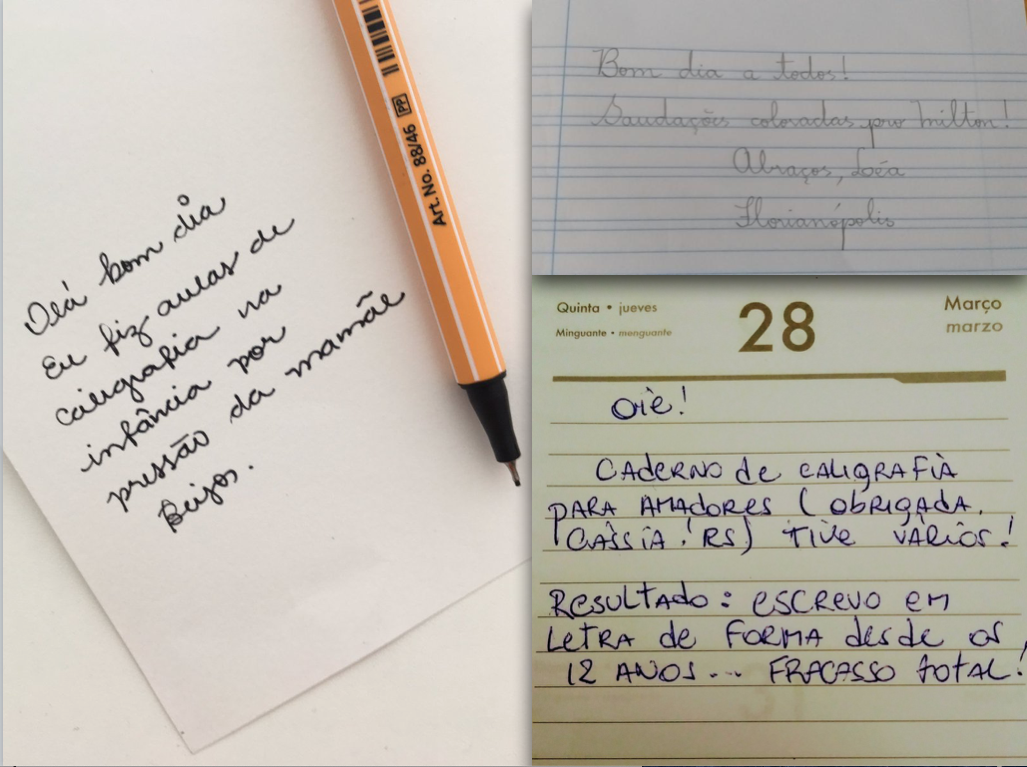 Olá bom dia
Eu fiz aulas de
caligrafia na
infância por
pressão da mamãe
Beijos.
Art. No. 88/46 PP
Bom dia a todos!
Saudações coloradas pro Milton!
Abraços, Loéa
Florianópolis
Quinta • jueves
Minguante • menguante
28
Março
marzo
Oiê!
CADERNO de CALIGRAFIA
PARA AMADORES (OBRIGADA,
CÁSSIA! RS) TIVE VÁRIOS!
RESULTADO: ESCREVO EM
LETRA de FORMA desde os
12 ANOS... FRACASSO TOTAL!